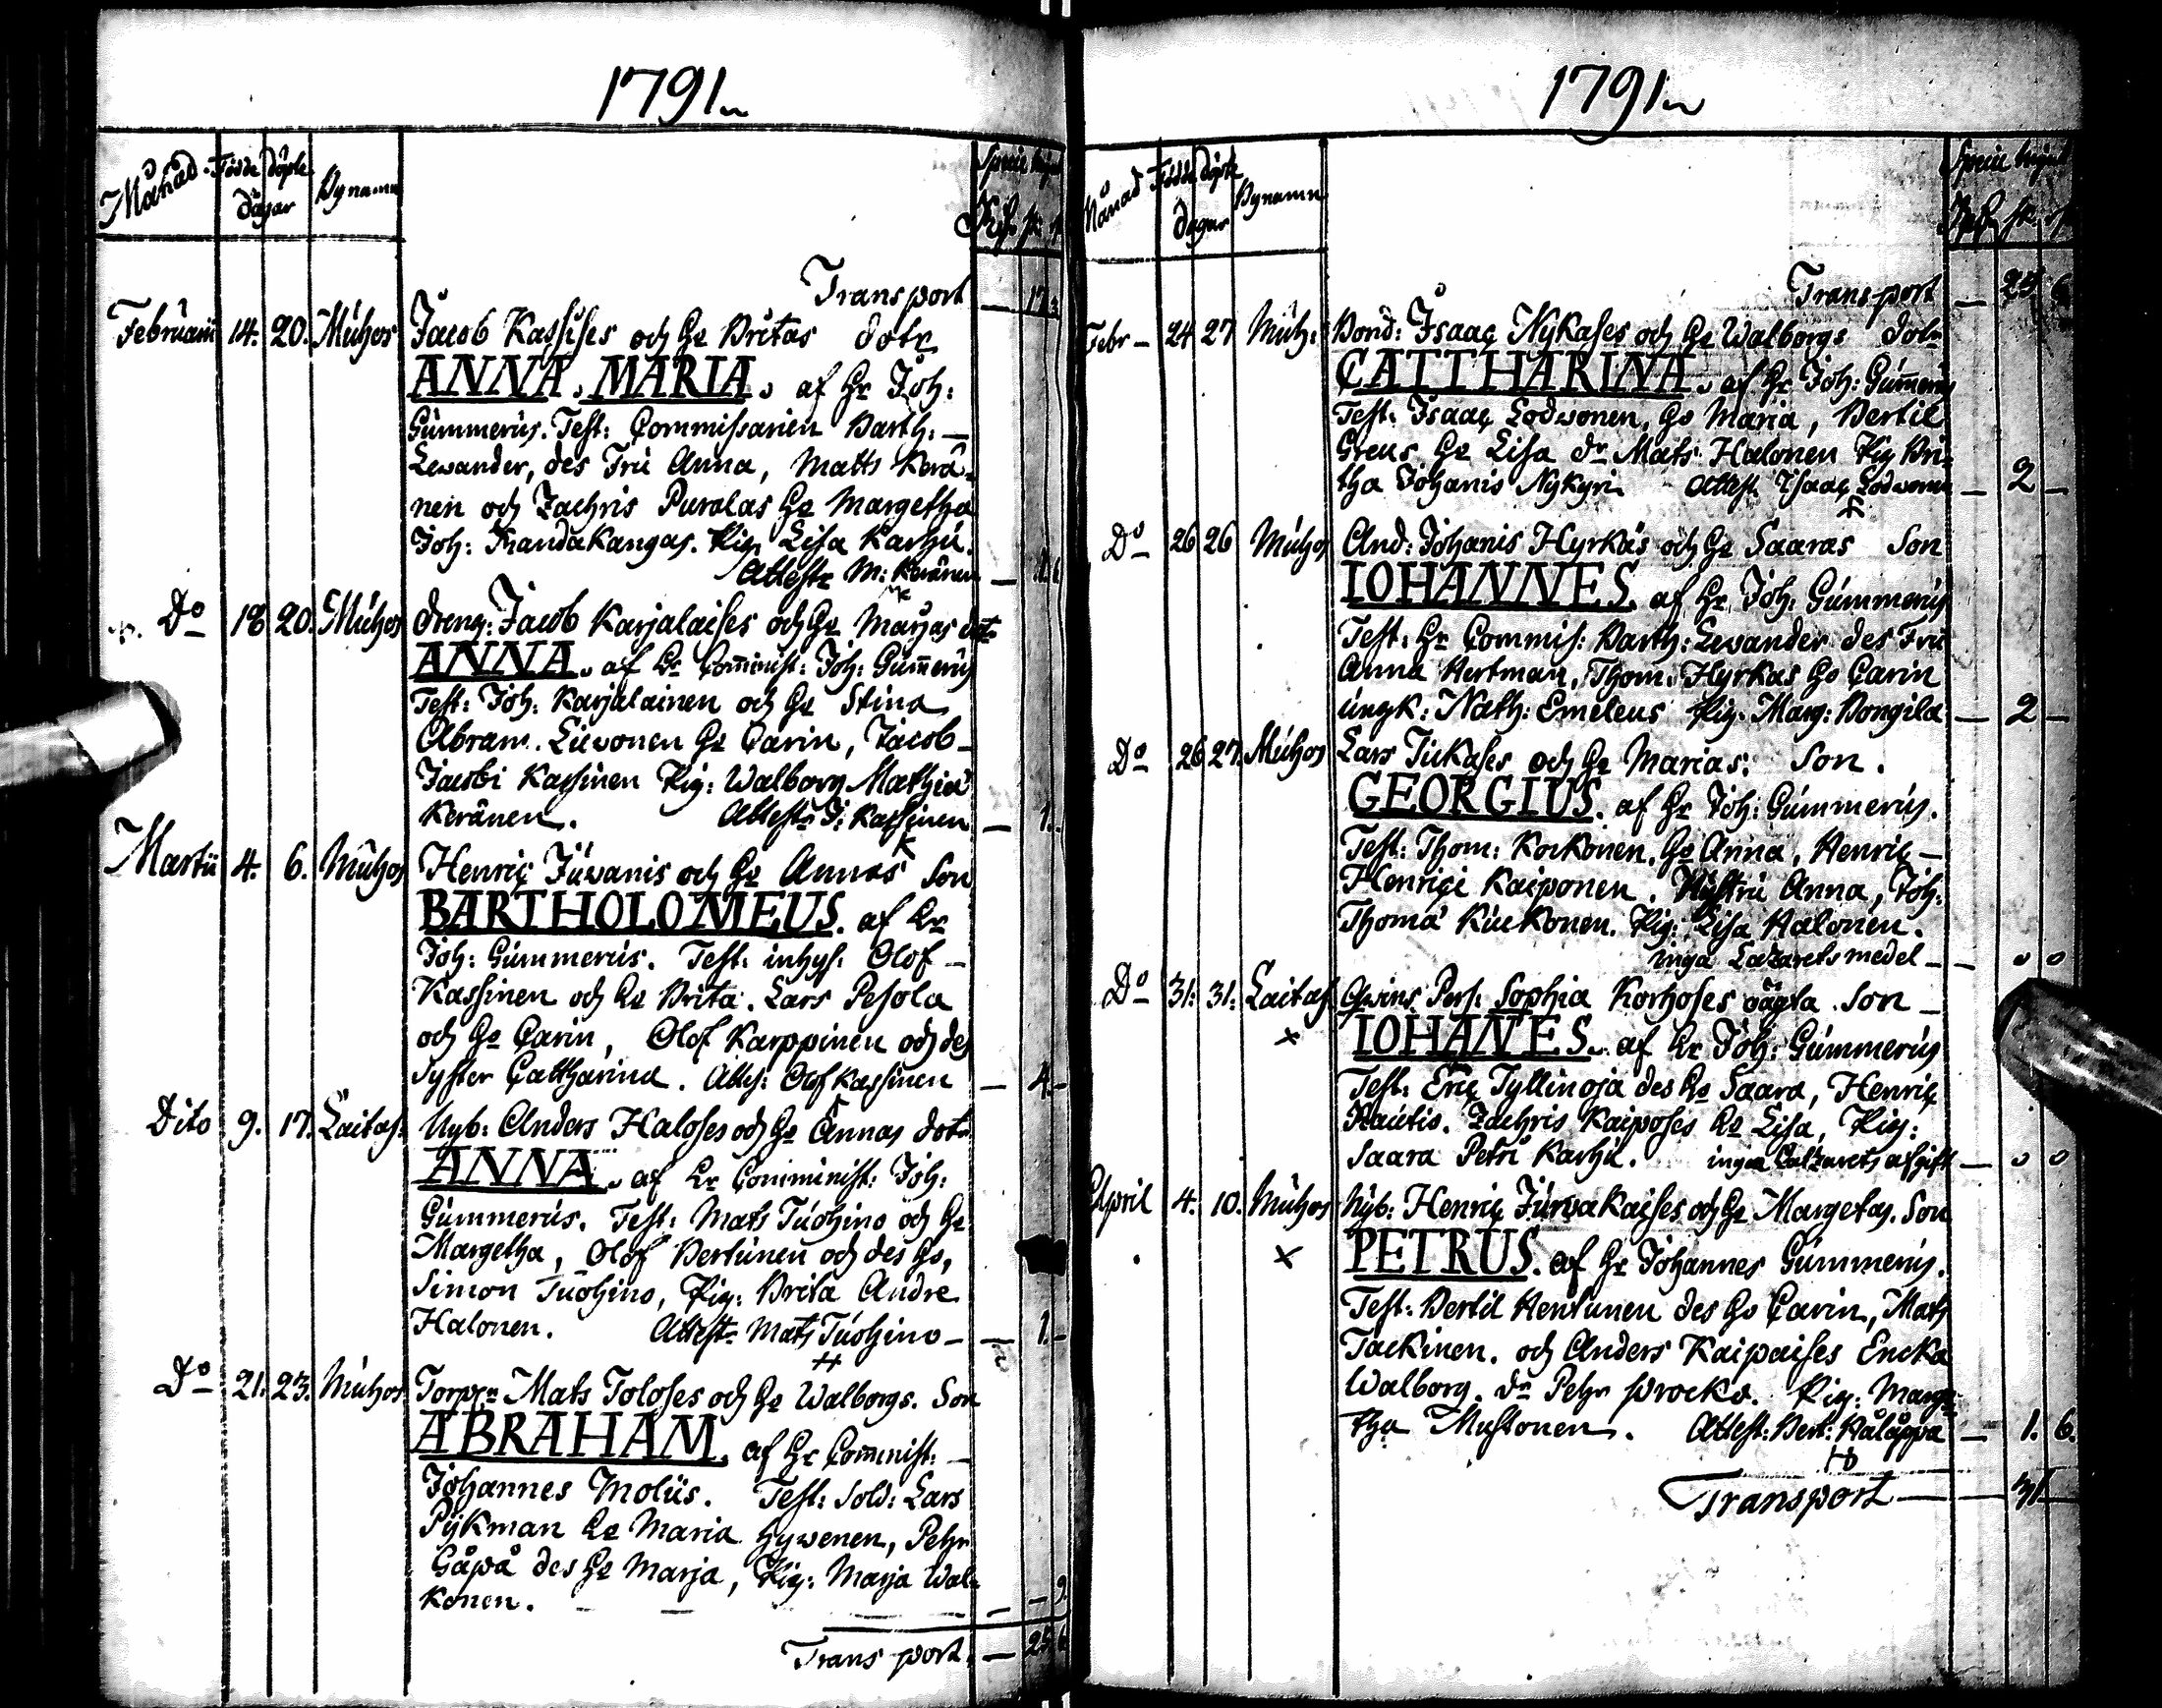 1791
Månad. Födde döpte Bynamn Specie
dagar
Transport — 17
Februarii 14. 20. Muhos Jacob Kassises och Hu Britas dotr
ANNA. MARIA. af Hr Joh:
Gummerus. Test: Commissarien Barth: —
Lewander, des Fru Anna, Matts Kerä-
nen och Zachris Puralas Hu Margetha
Joh: Frandakangas. Pig Lisa Karhu.
Attestr M: Keränen —
Do 18 20. Muhos Dreng: Jacob Karjalaises och Hu Marjas dotr
ANNA. af Hr Comminist: Joh: Gummerus
Test: Joh: Karjalainen och Hu Stina
Abram. Liewonen Hu Carin, Jacob —
Jacobi Kassinen Pig: Walborg Mathiæ
Keränen. Attestr J: Kassinen — 1.
Martii 4. 6. Muhos Henric Juwanis och Hu Annas Son
BARTHOLOMEUS. af Hr
Joh: Gummerus. Test: inhys: Olof —
Kassinen och Hu Brita. Lars Pesola
och Hu Carin, Olof Karppinen och des
Syster Cattharina. Attes: Olof Kassinen — 4 —
Dito 9. 17. Laitas: Nyb: Anders Haloses och Hu Annas dotr
ANNA. af Hr Comminist: Joh:
Gummerus. Test: Mats Tuohino och Hu
Margetha, Olof Pertunen och des Hu,
Simon Tuohino, Pig: Brita Andre
Halonen. Attestr Mats Tuohino — 1. —
Do 21. 23. Muhos Torpn Mats Toloses och Hu Walborgs. Son
ABRAHAM. af Hr Commist: —
Johannes Molius. Test: Sold: Lars
Pykman Hu Maria Hywenen, Pehr
Gåpå des Hu Marja, Pig: Marja Wal-
konen. — 9.
Transport. —
1791
Månad Födde döpte Bynamn Specie
dagar
Transport —
Febr — 24 27 Muh: Bond: Isaac Nykases och Hu Walborgs dotr
CATTHARINA. af Hr Joh: Gummerus
Test: Isaac Lodwonen, Hu Maria, Bertil
Greus Hu Lisa dr Mats Halonen Pig Bri-
tha Johanis Nykyri Attest Isaac Lodwonen — 2 —
Do 26 26 Muhos And: Johanis Hyrkäs och Hu Saaras Son
IOHANNES. af Hr Joh: Gummerus
Test: Hr Commis: Barth: Lewander des Fru
Anna Hertman, Thom: Hyrkas Hu Carin
ungk: Nath: Emeleus Pig: Marg: Bongila — 2 —
Do 26 27. Muhos Lars Tikases och Hu Marias: Son.
GEORGIUS. af Hr Joh: Gummerus.
Test: Thom: Korkonen, Hu Anna, Henric —
Henrici Kaiponen. Hustru Anna, Joh:
Thomæ Kiukonen. Pig: Lisa Halonen.
inga Lazarets medel — — 0 0
Do 31. 31. Laitas Qwins Pers: Sophia Korhoses oägta Son —
IOHANES. af Hr Joh: Gummerus
Test: Eric Tyllinoja des Hu Saara, Henric
Rautio. Zachris Kaiposes Hu Lisa, Pig:
Saara Petri Karhu. inga Latzarets afgift — 0 0
April 4. 10. Muhos Nyb: Henric Jurwakaises och Hu Margetas. Son
PETRUS. af Hr Johannes Gummerus.
Test: Bertil Hentunen des Hu Carin, Mats
Tackinen. och Anders Kaipaises Encka
Walborg. dr Pehr Procko. Pig: Marge-
tha Mustonen. Attest: Bert: — 1. 6.
Transport — 31